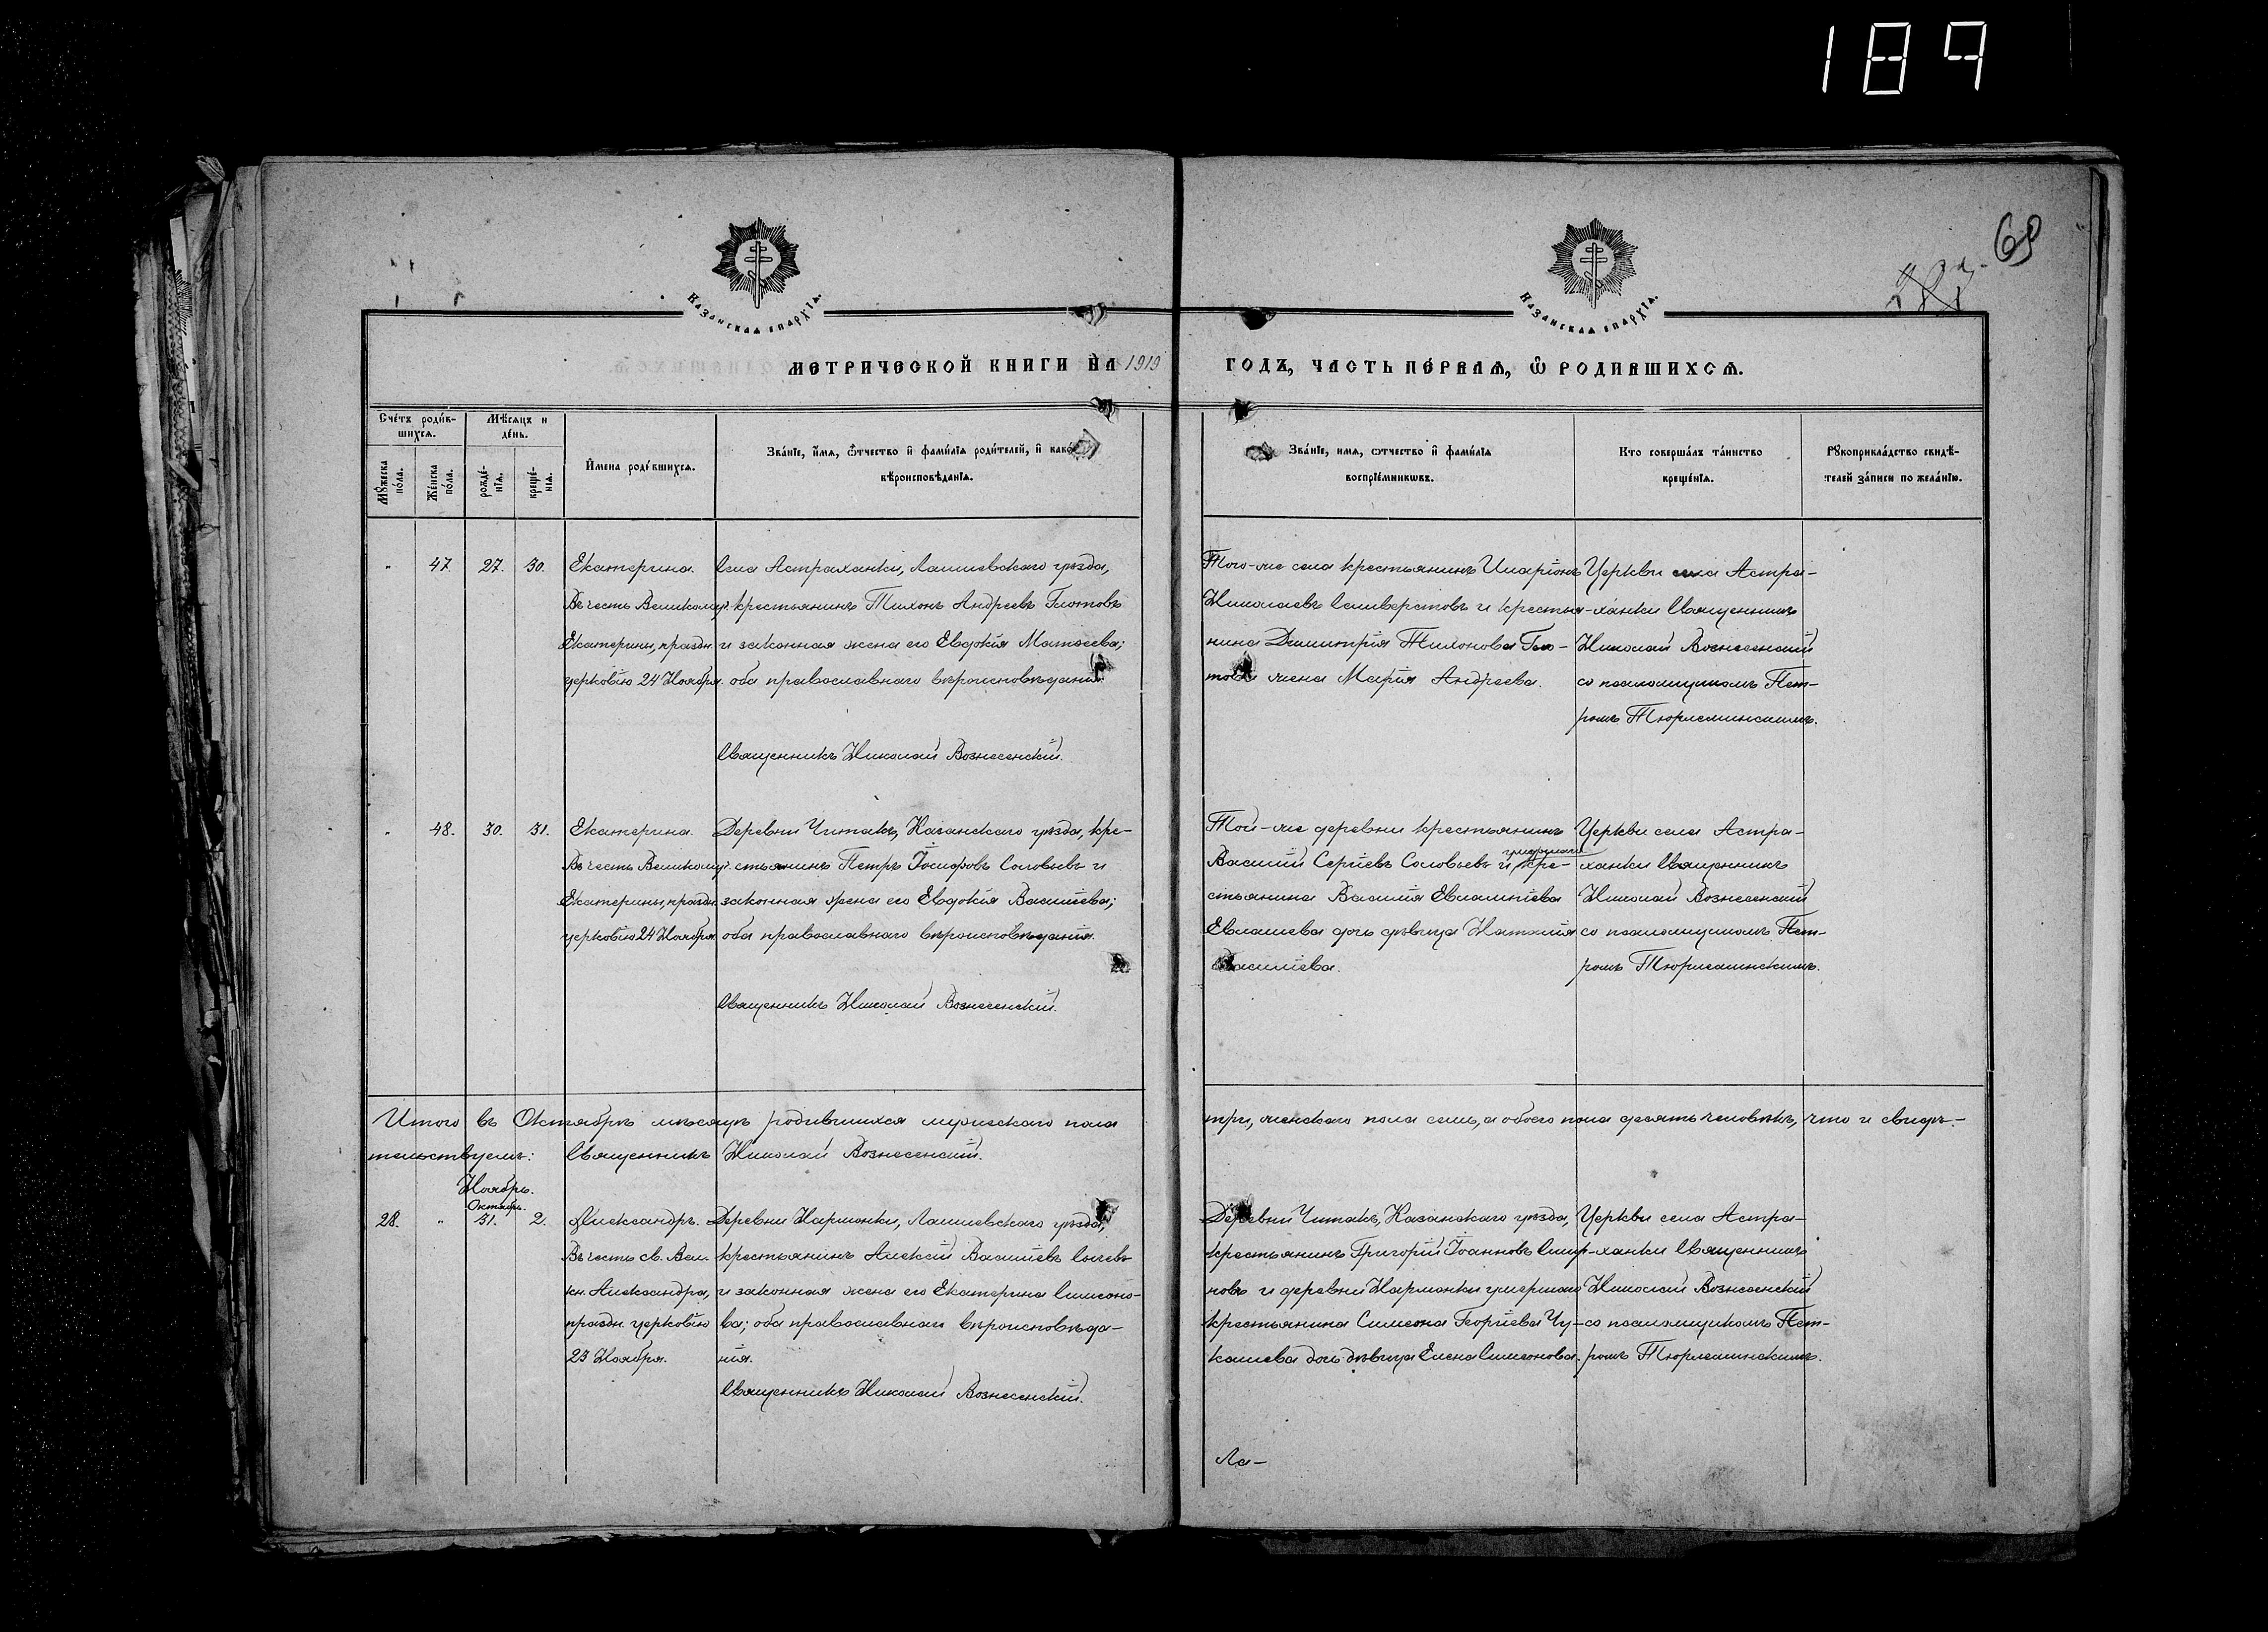 189
69
Казанская епархія.
Казанская епархія.
Метрической книги на 1919 годъ, часть первая, ѡ родившихся.
Счетъ родившихся.
Мѣсяцъ и день.
Имена родившихся.
Званіе, имя, ѿтчество и фамилія родителей, и како
вѣроисповѣданія.
Званіе, имя, ѿтчество и фамилія
воспріемниковъ.
Кто совершалъ таинство
крещенія.
Рукоприкладство свидѣ-
телей записи по желанію.
Мужеска пола.
Женска пола.
рожде-
нія.
креще-
нія.
" 47. 27. 30.
Екатерина.
Въ честь Великомуч.
Екатерины, праздн.
церковію 24 Ноября.
Села Астраханки, Лаишевскаго уѣзда,
крестьянинъ Тихонъ Андреевъ Глотовъ
и законная жена его Евдокія Матѳеева;
оба православнаго вѣроисповѣданія.
Священникъ Николай Вознесенскій.
Того-же села крестьянинъ Иларіонъ
Николаевъ Селиверстовъ и крестья-
нина Димитрія Тихонова Гло-
това жена Марія Андреева.
Церкви села Астра-
ханки Священникъ
Николай Вознесенскій
со псаломщикомъ Пет-
ромъ Тюрлеминскимъ.
" 48. 30. 31.
Екатерина.
Въ честь Великомуч.
Екатерины, праздн.
церковію 24 Ноября
Деревни Читакъ, Казанскаго уѣзда, кре-
стьянинъ Петръ Іосифовъ Соловьевъ и
законная жена его Евдокія Василіева;
оба православнаго вѣроисповѣданія.
Священникъ Николай Вознесенскій.
Той-же деревни крестьянинъ
Василій Сергіевъ Соловьевъ и умершаго кре-
стьянина Василія Евлампіева
Евлашева дочь дѣвица Наталія
Василіева.
Церкви села Астра-
ханки Священникъ
Николай Вознесенскій
со псаломщикомъ Пет-
ромъ Тюрлеминскимъ.
Итого въ Октябрѣ мѣсяцѣ родившихся мужескаго пола три, женскаго пола семь, а обоего пола десять человѣкъ, что и свидѣ-
тельствуемъ: Священникъ Николай Вознесенскій.
Ноябрь.
Октябрь.
28. " 31. 2.
Александръ.
Въ честь св. Вел.
кн. Александра,
праздн. церковію
23 Ноября.
Деревни Нармонки, Лаишевскаго уѣзда,
крестьянинъ Алексій Василіевъ Сычевъ
и законная жена его Екатерина Симеоно-
ва; оба православнаго вѣроисповѣда-
нія.
Священникъ Николай Вознесенскій.
Деревни Читакъ, Казанскаго уѣзда,
крестьянинъ Григорій Іоанновъ Смир-
новъ и деревни Нармонки умершаго
крестьянина Симеона Георгіева Чу-
кашева дочь дѣвица Елена Симеонова.
Церкви села Астра-
ханки Священникъ
Николай Вознесенскій
со псаломщикомъ Пет-
ромъ Тюрлеминскимъ.
Ла-